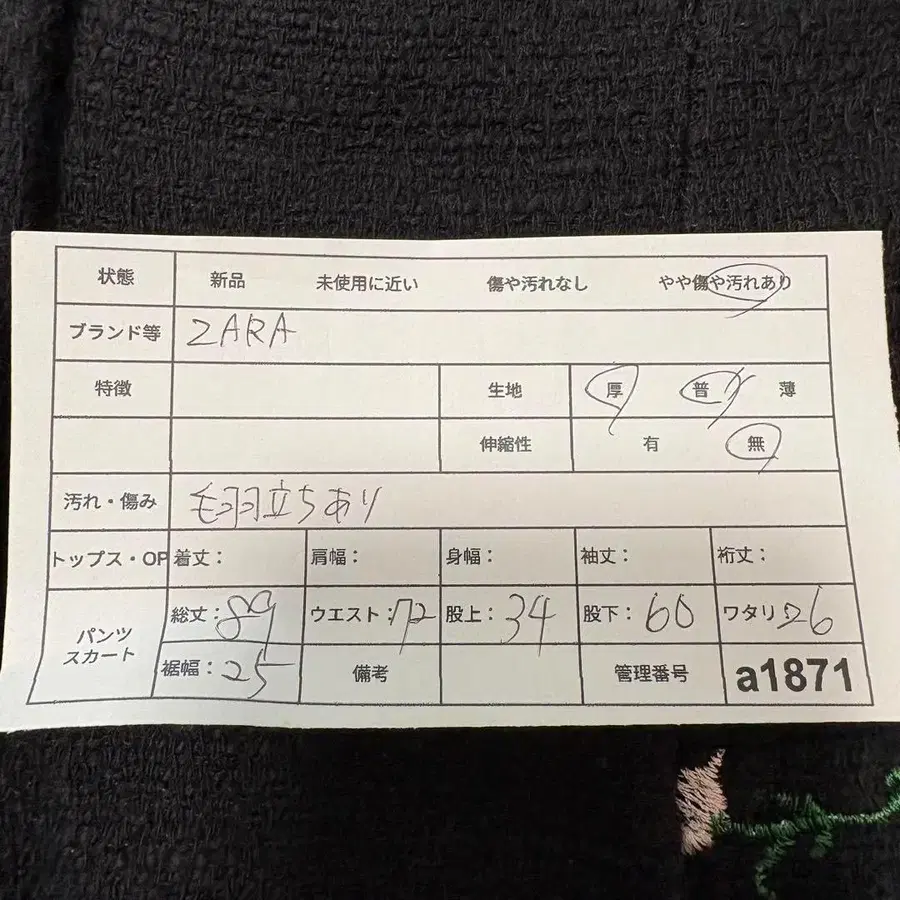 状態 新品 未使用に近い 傷や汚れなし やや傷や汚れあり
ブランド等 ZARA
特徴 生地 厚 普 薄
伸縮性 有 無
汚れ・傷み 毛羽立ちあり
トップス・OP 着丈： 肩幅： 身幅： 袖丈： 裄丈：
パンツ
スカート
総丈：89 ウエスト：72 股上：34 股下：60 ワタリ：26
裾幅：25 備考 管理番号 a1871